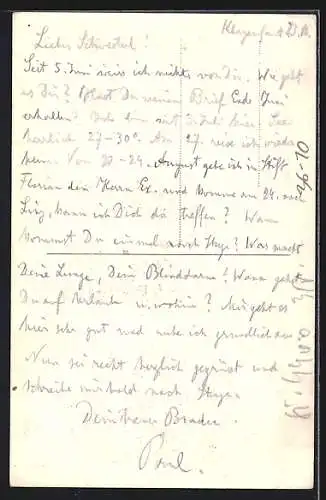 Klagenfurt 23.
Liebes Schwesterl!
Seit 5. Juni weiss ich nichts von Dir. Wie geht
es Dir? Hast Du meinen Brief Ende Juni
erhalten? bin seit 3. Juli hier. See
herrlich 27–30°. Am 17. reise ich wieder
heim. Von 20–24. August gehe ich in Stift
Florian den Herrn Ex. und komme am 24. nach
Linz, kann ich Dich da treffen? Wann
kommst Du einmal nach Steyr? Was macht
Deine Lunge, Dein Blinddarm? Wann gehst
Du auf Urlaub u. wohin? Mir geht es
hier sehr gut und ruhe ich gründlich aus.
Nun sei recht herzlich gegrüsst und
schreibe mir bald nach Steyr.
Dein treuer Bruder
Paul.